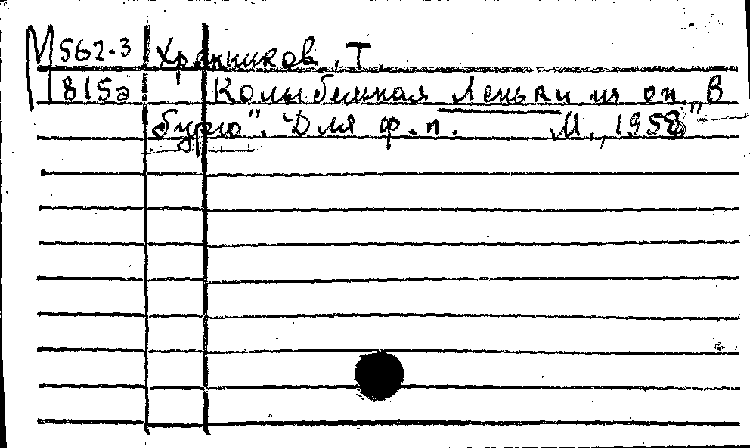 М 562-3 Хренников, Т.
815а Колыбельная Леньки из оп. "В
бурю". Для ф.п. М., 1958